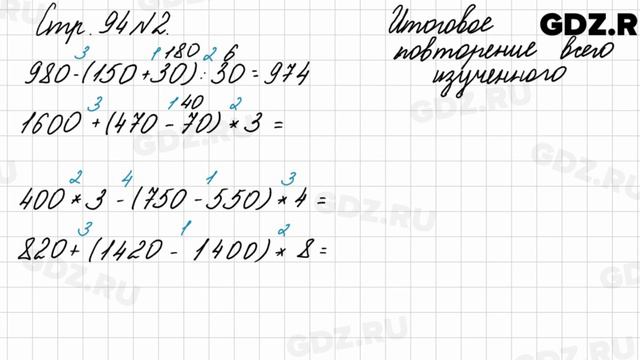 Стр. 94 №2.
3 1 180 2 6
980-(150+30):30=974
3 1 40 2
1600+(470-70)*3=
2 4 1 3
400*3-(750-550)*4=
3 1 2
820+(1420-1400)*8=
Итоговое
повторение всего
изученного
GDZ.R
GDZ.RU
GDZ.RU
GDZ.RU
GDZ.RU
GDZ.RU
GDZ.RU